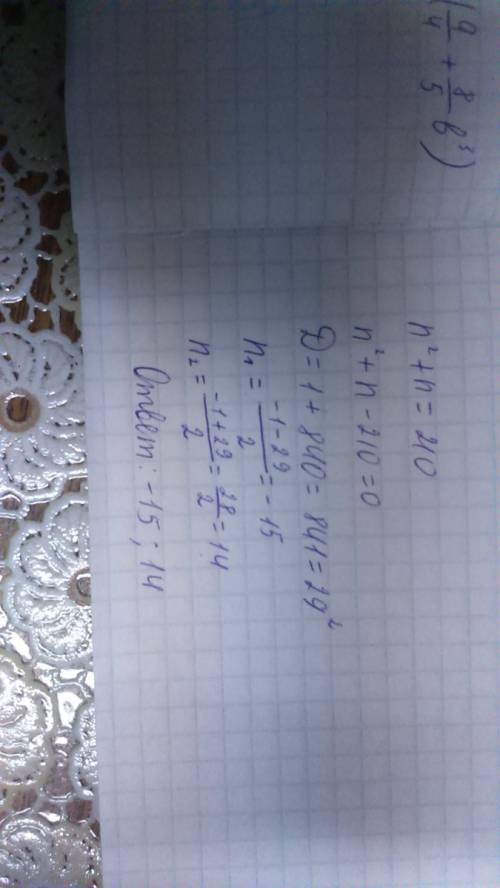 (9/4 + 8/5 b³)
n² + n = 210
n² + n - 210 = 0
D = 1 + 840 = 841 = 29²
n₁ = (-1 - 29)/2 = -15
n₂ = (-1 + 29)/2 = 28/2 = 14
Ответ: -15; 14